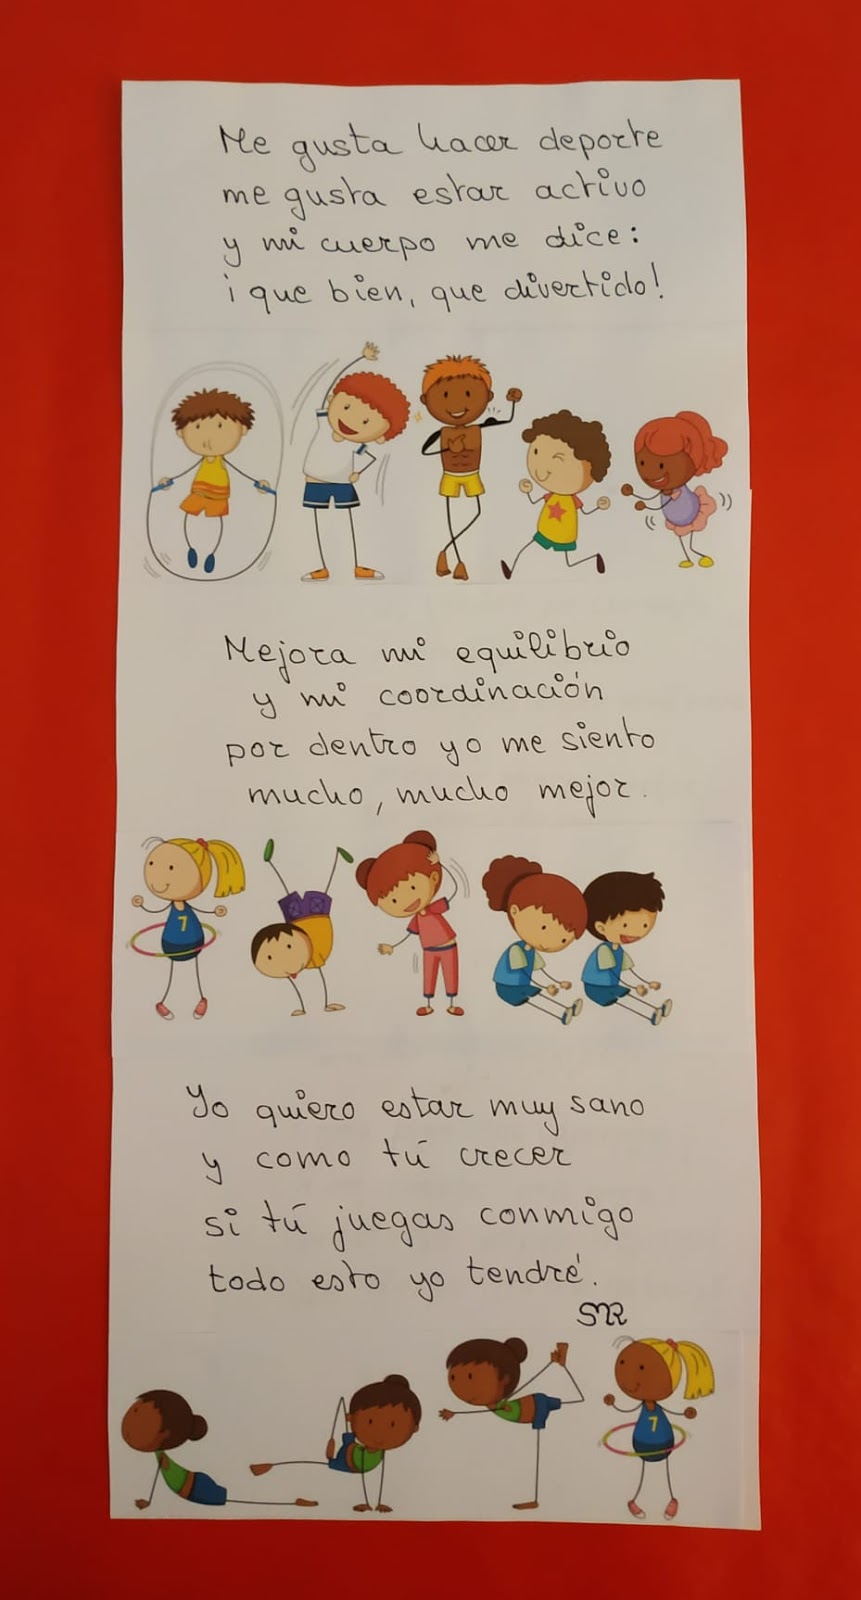 Me gusta hacer deporte
me gusta estar activo
y mi cuerpo me dice:
¡que bien, que divertido!
Mejora mi equilibrio
y mi coordinación
por dentro yo me siento
mucho, mucho mejor.
7
Yo quiero estar muy sano
y como tú crecer
si tú juegas conmigo
todo esto yo tendré.
SMR
7